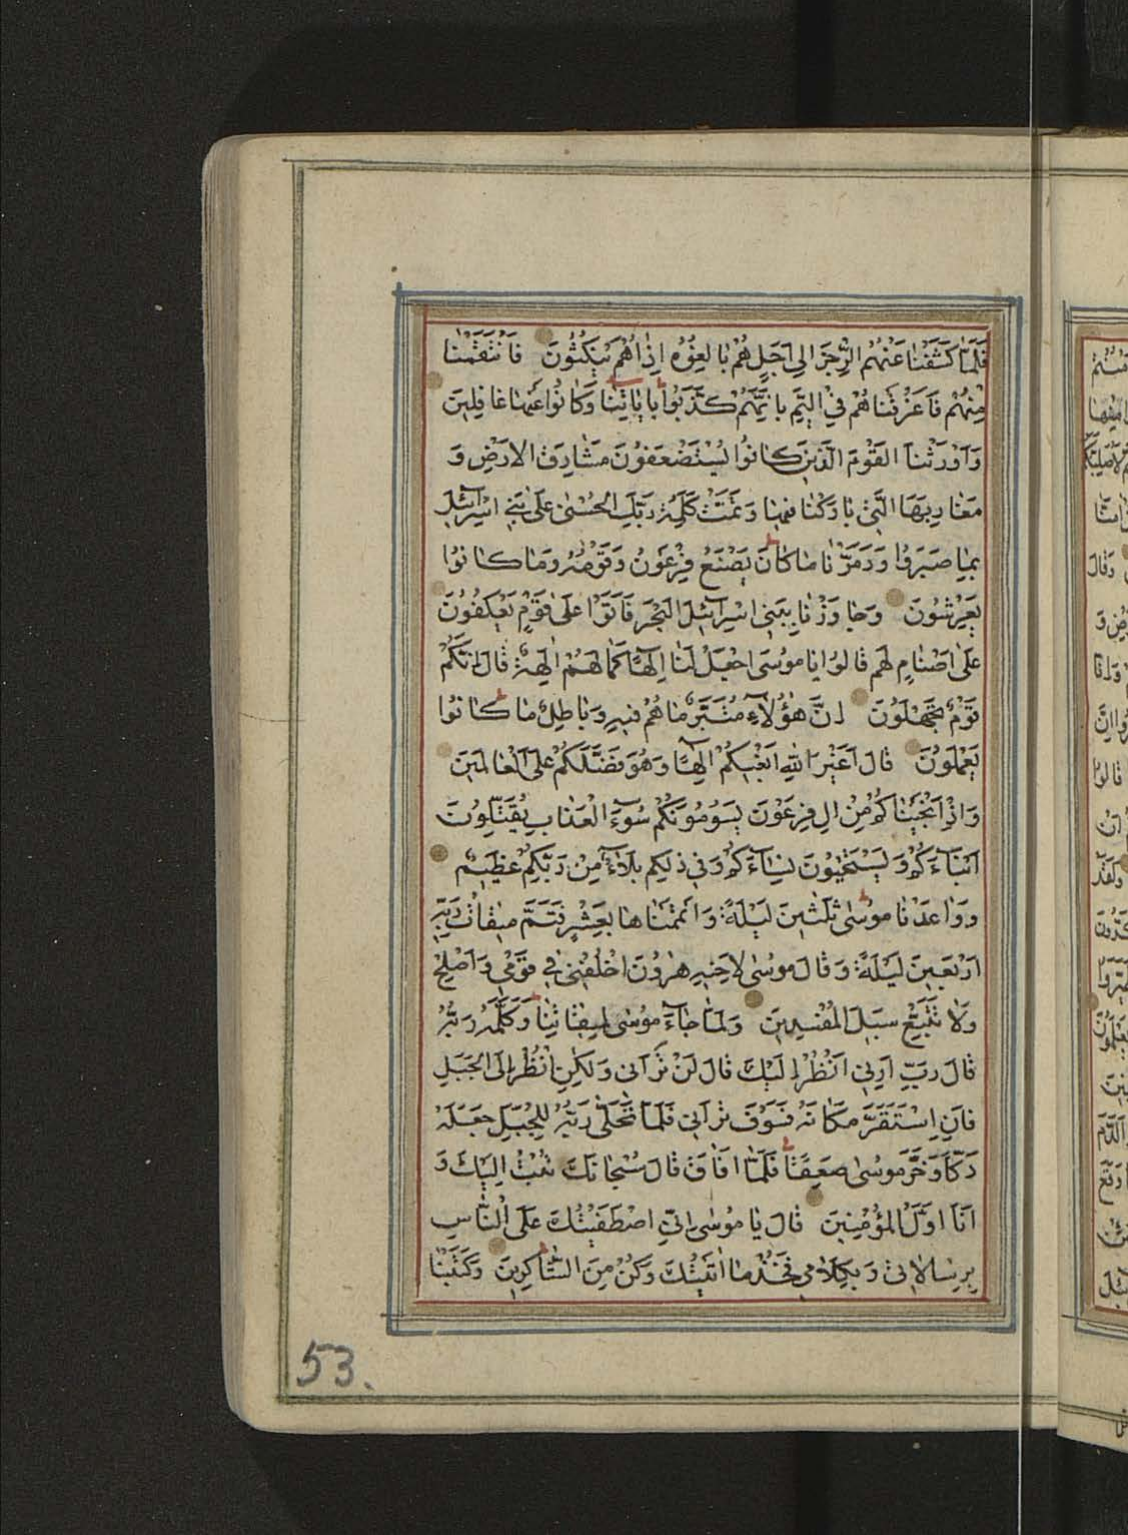 فَلَمَّا كَشَفْنَا عَنْهُمُ الرِّجْزَ اِلٰى اَجَلٍ هُمْ بَالِغُوْهُ اِذَا هُمْ يَنْكُثُوْنَ فَانْتَقَمْنَا
مِنْهُمْ فَاَغْرَقْنَاهُمْ فِي الْيَمِّ بِاَنَّهُمْ كَذَّبُوْا بِاٰيَاتِنَا وَكَانُوْا عَنْهَا غَافِلِيْنَ
وَاَوْرَثْنَا الْقَوْمَ الَّذِيْنَ كَانُوْا يُسْتَضْعَفُوْنَ مَشَارِقَ الْاَرْضِ وَ
مَغَارِبَهَا الَّتِيْ بَارَكْنَا فِيْهَا وَتَمَّتْ كَلِمَةُ رَبِّكَ الْحُسْنٰى عَلٰى بَنِيْ اِسْرَآئِيْلَ
بِمَا صَبَرُوْا وَدَمَّرْنَا مَا كَانَ يَصْنَعُ فِرْعَوْنُ وَقَوْمُهُ وَمَا كَانُوْا
يَعْرِشُوْنَ وَجَاوَزْنَا بِبَنِيْ اِسْرَآئِيْلَ الْبَحْرَ فَاَتَوْا عَلٰى قَوْمٍ يَعْكُفُوْنَ
عَلٰى اَصْنَامٍ لَهُمْ قَالُوْا يَا مُوْسَى اجْعَلْ لَنَا اِلٰهًا كَمَا لَهُمْ اٰلِهَةٌ قَالَ اِنَّكُمْ
قَوْمٌ تَجْهَلُوْنَ اِنَّ هٰؤُلَآءِ مُتَبَّرٌ مَا هُمْ فِيْهِ وَبَاطِلٌ مَا كَانُوْا
يَعْمَلُوْنَ قَالَ اَغَيْرَ اللّٰهِ اَبْغِيْكُمْ اِلٰهًا وَهُوَ فَضَّلَكُمْ عَلَى الْعَالَمِيْنَ
وَاِذْ اَنْجَيْنَاكُمْ مِنْ اٰلِ فِرْعَوْنَ يَسُوْمُوْنَكُمْ سُوْٓءَ الْعَذَابِ يُقَتِّلُوْنَ
اَبْنَآءَكُمْ وَيَسْتَحْيُوْنَ نِسَآءَكُمْ وَفِيْ ذٰلِكُمْ بَلَآءٌ مِنْ رَبِّكُمْ عَظِيْمٌ
وَوَاعَدْنَا مُوْسٰى ثَلٰثِيْنَ لَيْلَةً وَاَتْمَمْنَاهَا بِعَشْرٍ فَتَمَّ مِيْقَاتُ رَبِّهِ
اَرْبَعِيْنَ لَيْلَةً وَقَالَ مُوْسٰى لِاَخِيْهِ هٰرُوْنَ اخْلُفْنِيْ فِيْ قَوْمِيْ وَاَصْلِحْ
وَلَا تَتَّبِعْ سَبِيْلَ الْمُفْسِدِيْنَ وَلَمَّا جَآءَ مُوْسٰى لِمِيْقَاتِنَا وَكَلَّمَهُ رَبُّهُ
قَالَ رَبِّ اَرِنِيْ اَنْظُرْ اِلَيْكَ قَالَ لَنْ تَرَانِيْ وَلٰكِنِ انْظُرْ اِلَى الْجَبَلِ
فَاِنِ اسْتَقَرَّ مَكَانَهُ فَسَوْفَ تَرَانِيْ فَلَمَّا تَجَلّٰى رَبُّهُ لِلْجَبَلِ جَعَلَهُ
دَكًّا وَخَرَّ مُوْسٰى صَعِقًا فَلَمَّا اَفَاقَ قَالَ سُبْحَانَكَ تُبْتُ اِلَيْكَ وَ
اَنَا اَوَّلُ الْمُؤْمِنِيْنَ قَالَ يَا مُوْسٰى اِنِّيْ اصْطَفَيْتُكَ عَلَى النَّاسِ
بِرِسَالَاتِيْ وَبِكَلَامِيْ فَخُذْ مَا اٰتَيْتُكَ وَكُنْ مِنَ الشَّاكِرِيْنَ وَكَتَبْنَا
53.